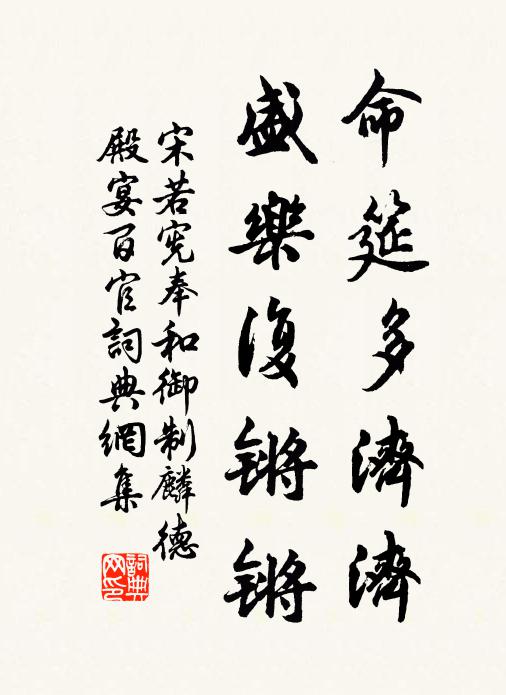 命筵多濟濟
盛樂復锵锵
宋若宪奉和御制麟德
殿宴百官詞典網集
詞典
网印